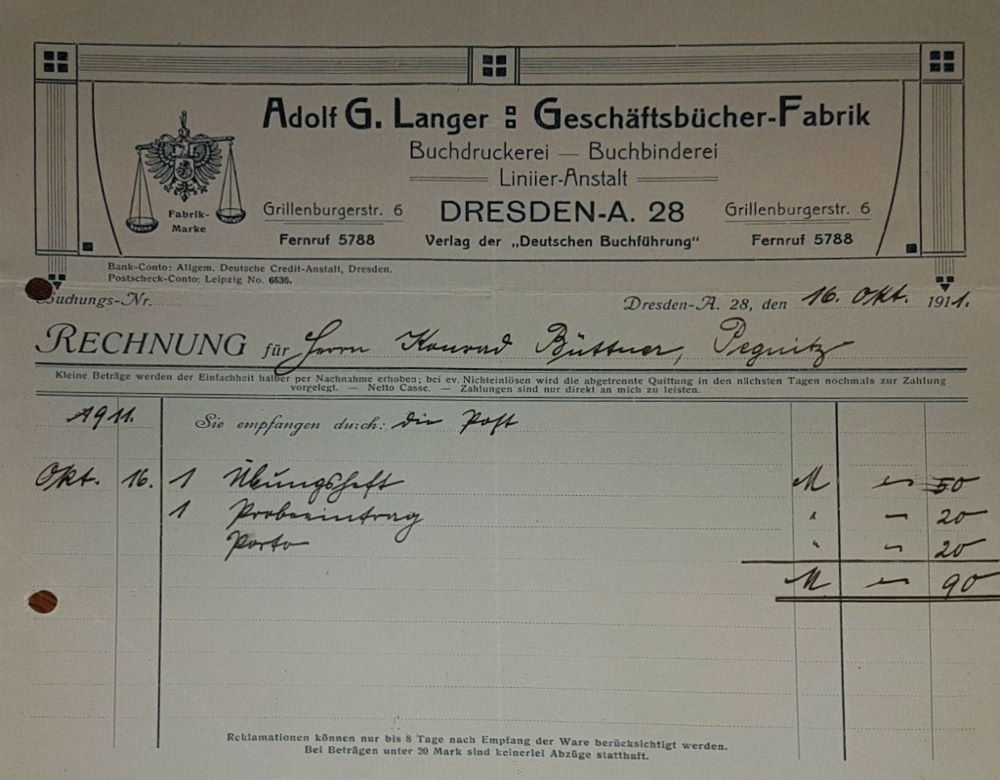 Adolf G. Langer :: Geschäftsbücher-Fabrik
Buchdruckerei — Buchbinderei
Liniier-Anstalt
Fabrik-
Marke
Grillenburgerstr. 6 DRESDEN-A. 28 Grillenburgerstr. 6
Fernruf 5788 Verlag der „Deutschen Buchführung“ Fernruf 5788
Bank-Conto: Allgem. Deutsche Credit-Anstalt, Dresden.
Postscheck-Conto: Leipzig No. 6836.
Buchungs-Nr. Dresden-A. 28, den 16. Okt. 1911.
RECHNUNG für Herrn Konrad Büttner, Pegnitz
Kleine Beträge werden der Einfachheit halber per Nachnahme erhoben; bei ev. Nichteinlösen wird die abgetrennte Quittung in den nächsten Tagen nochmals zur Zahlung
vorgelegt. — Netto Casse. — Zahlungen sind nur direkt an mich zu leisten.
1911. Sie empfangen durch: die Post
Okt. 16. 1 Übungsheft M — 50
1 Probeeintrag " — 20
Porto " — 20
M — 90
Reklamationen können nur bis 8 Tage nach Empfang der Ware berücksichtigt werden.
Bei Beträgen unter 20 Mark sind keinerlei Abzüge statthaft.